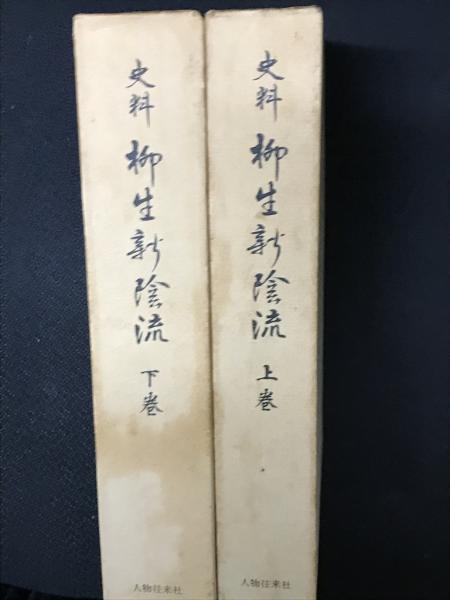 史料 柳生新陰流 上巻
人物往来社
史料 柳生新陰流 下巻
人物往来社